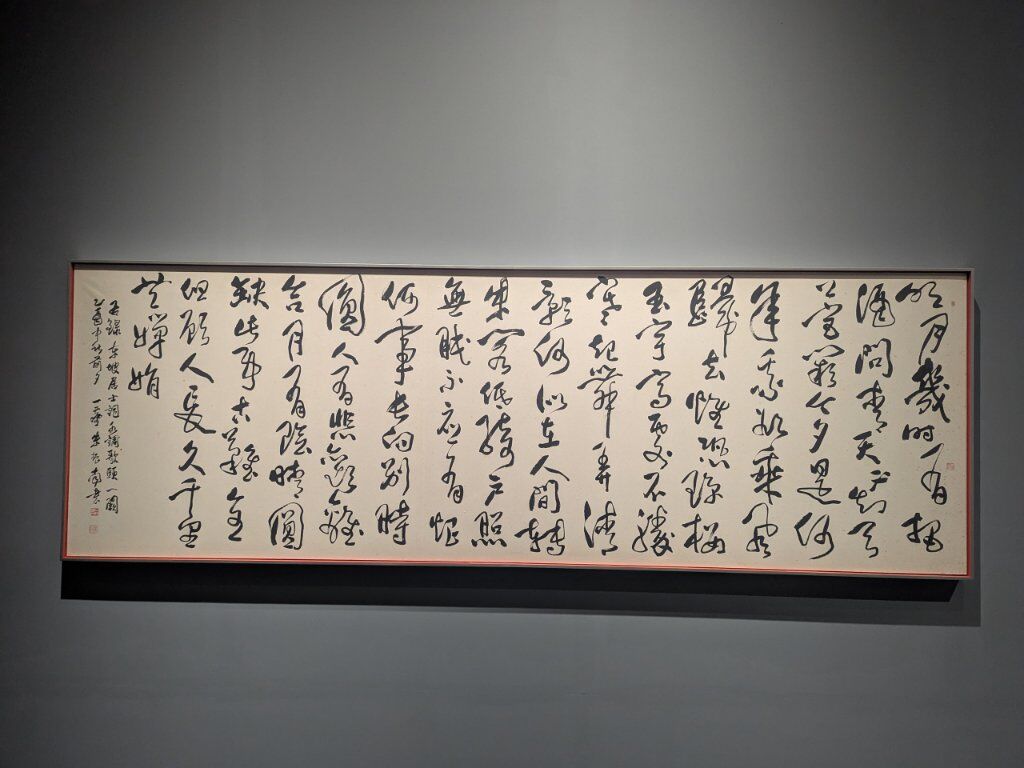 明月幾時有把
酒問青天不知天
上宮闕今夕是何
年我欲乘風
歸去惟恐瓊樓
玉宇高處不勝
寒起舞弄清
影何似在人間轉
朱閣低綺戶照
無眠不應有恨
何事長向別時
圓人有悲歡離
合月有陰晴圓
缺此事古難全
但願人長久千里
共嬋娟
錄東坡居士詞水調歌頭一闋
乙酉中秋前夕